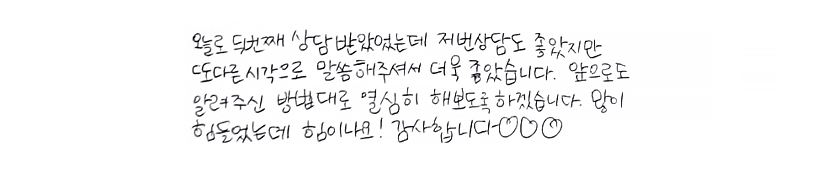 오늘로 두번째 상담받았었는데 저번상담도 좋았지만
또다른시각으로 말씀해주셔서 더욱 좋았습니다. 앞으로도
알려주신 방법대로 열심히 해보도록하겠습니다. 많이
힘들었는데 힘이나요! 감사합니다~♡♡♡